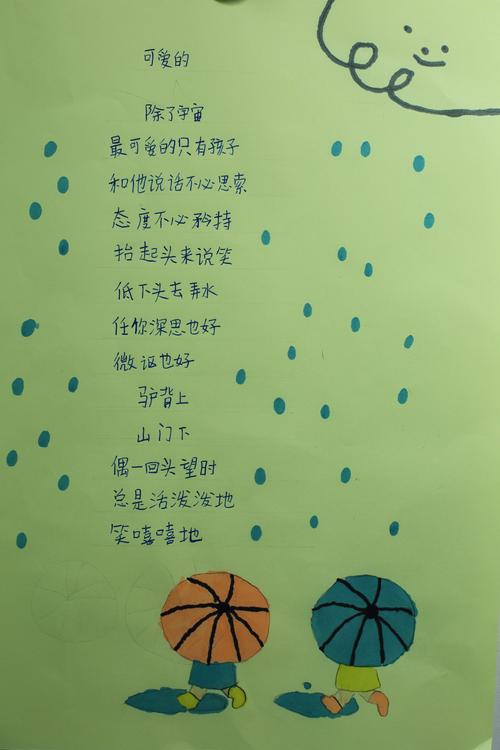 可爱的
除了宇宙
最可爱的只有孩子
和他说话不必思索
态度不必矜持
抬起头来说笑
低下头去弄水
任你深思也好
微讴也好
驴背上
山门下
偶一回头望时
总是活泼泼地
笑嘻嘻地